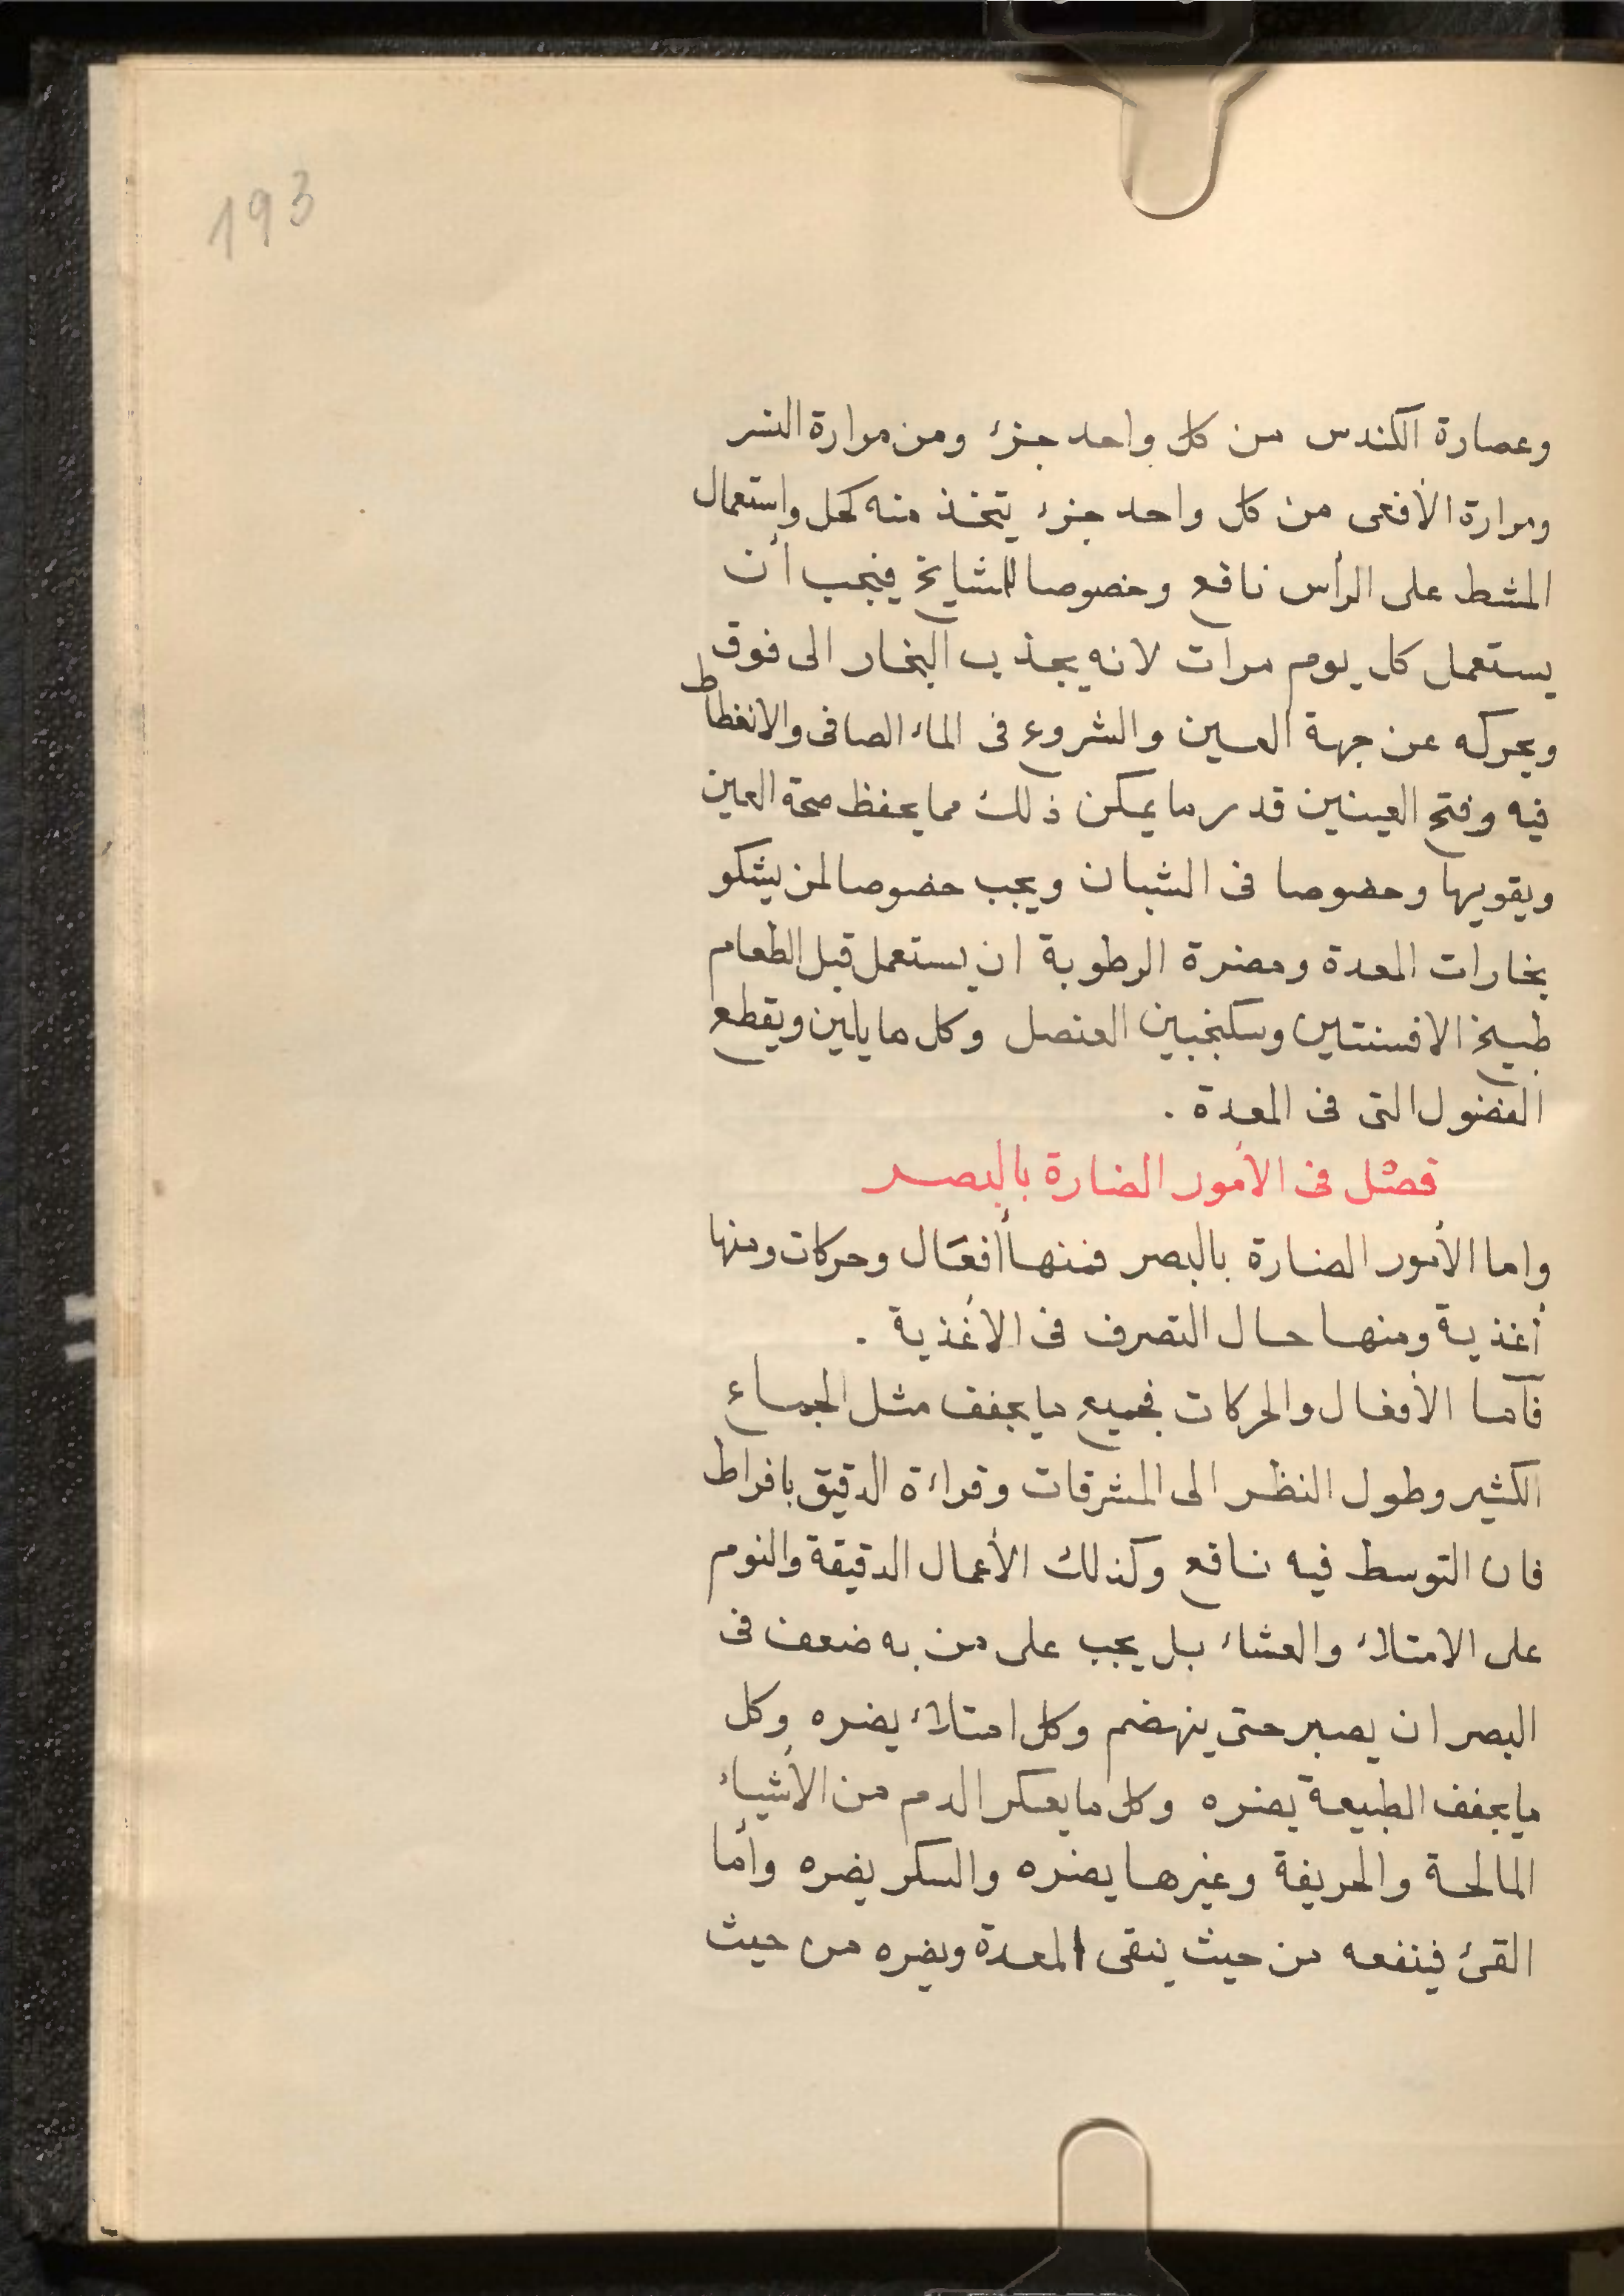 193
وعصارة الكندس من كل واحد جزء ومن مرارة النسر
ومرارة الأفعى من كل واحد جزء يتخذ منه كحل واستعمال
المشط على الرأس نافع وخصوصا للمشايخ فيجب أن
يستعمل كل يوم مرات لانه يجذب البخار الى فوق
ويحركه عن جهة العين والشروع فى الماء الصافى والانغطاط
فيه وفتح العينين قدر ما يمكن ذلك مما يحفظ صحة العين
ويقويها وخصوصا فى الشبان ويجب خصوصا لمن يشكو
بخارات المعدة ومضرة الرطوبة ان يستعمل قبل الطعام
طبيخ الافسنتين وسكنجبين العنصل وكل ما يلين ويقطع
الفضول التى فى المعدة .
فصل فى الأمور الضارة بالبصر
واما الأمور الضارة بالبصر فمنها أفعال وحركات ومنها
أغذية ومنها حال التصرف فى الأغذية .
فأما الأفعال والحركات فجميع ما يجفف مثل الجماع
الكثير وطول النظر الى المشرقات وقراءة الدقيق بافراط
فان التوسط فيه نافع وكذلك الأعمال الدقيقة والنوم
على الامتلاء والعشاء بل يجب على من به ضعف فى
البصر ان يصبر حتى ينهضم وكل امتلاء يضره وكل
ما يجفف الطبيعة يضره وكل ما يعكر الدم من الأشياء
المالحة والحريفة وغيرها يضره والسكر يضره وأما
القئ فينفعه من حيث ينقى المعدة ويضره من حيث